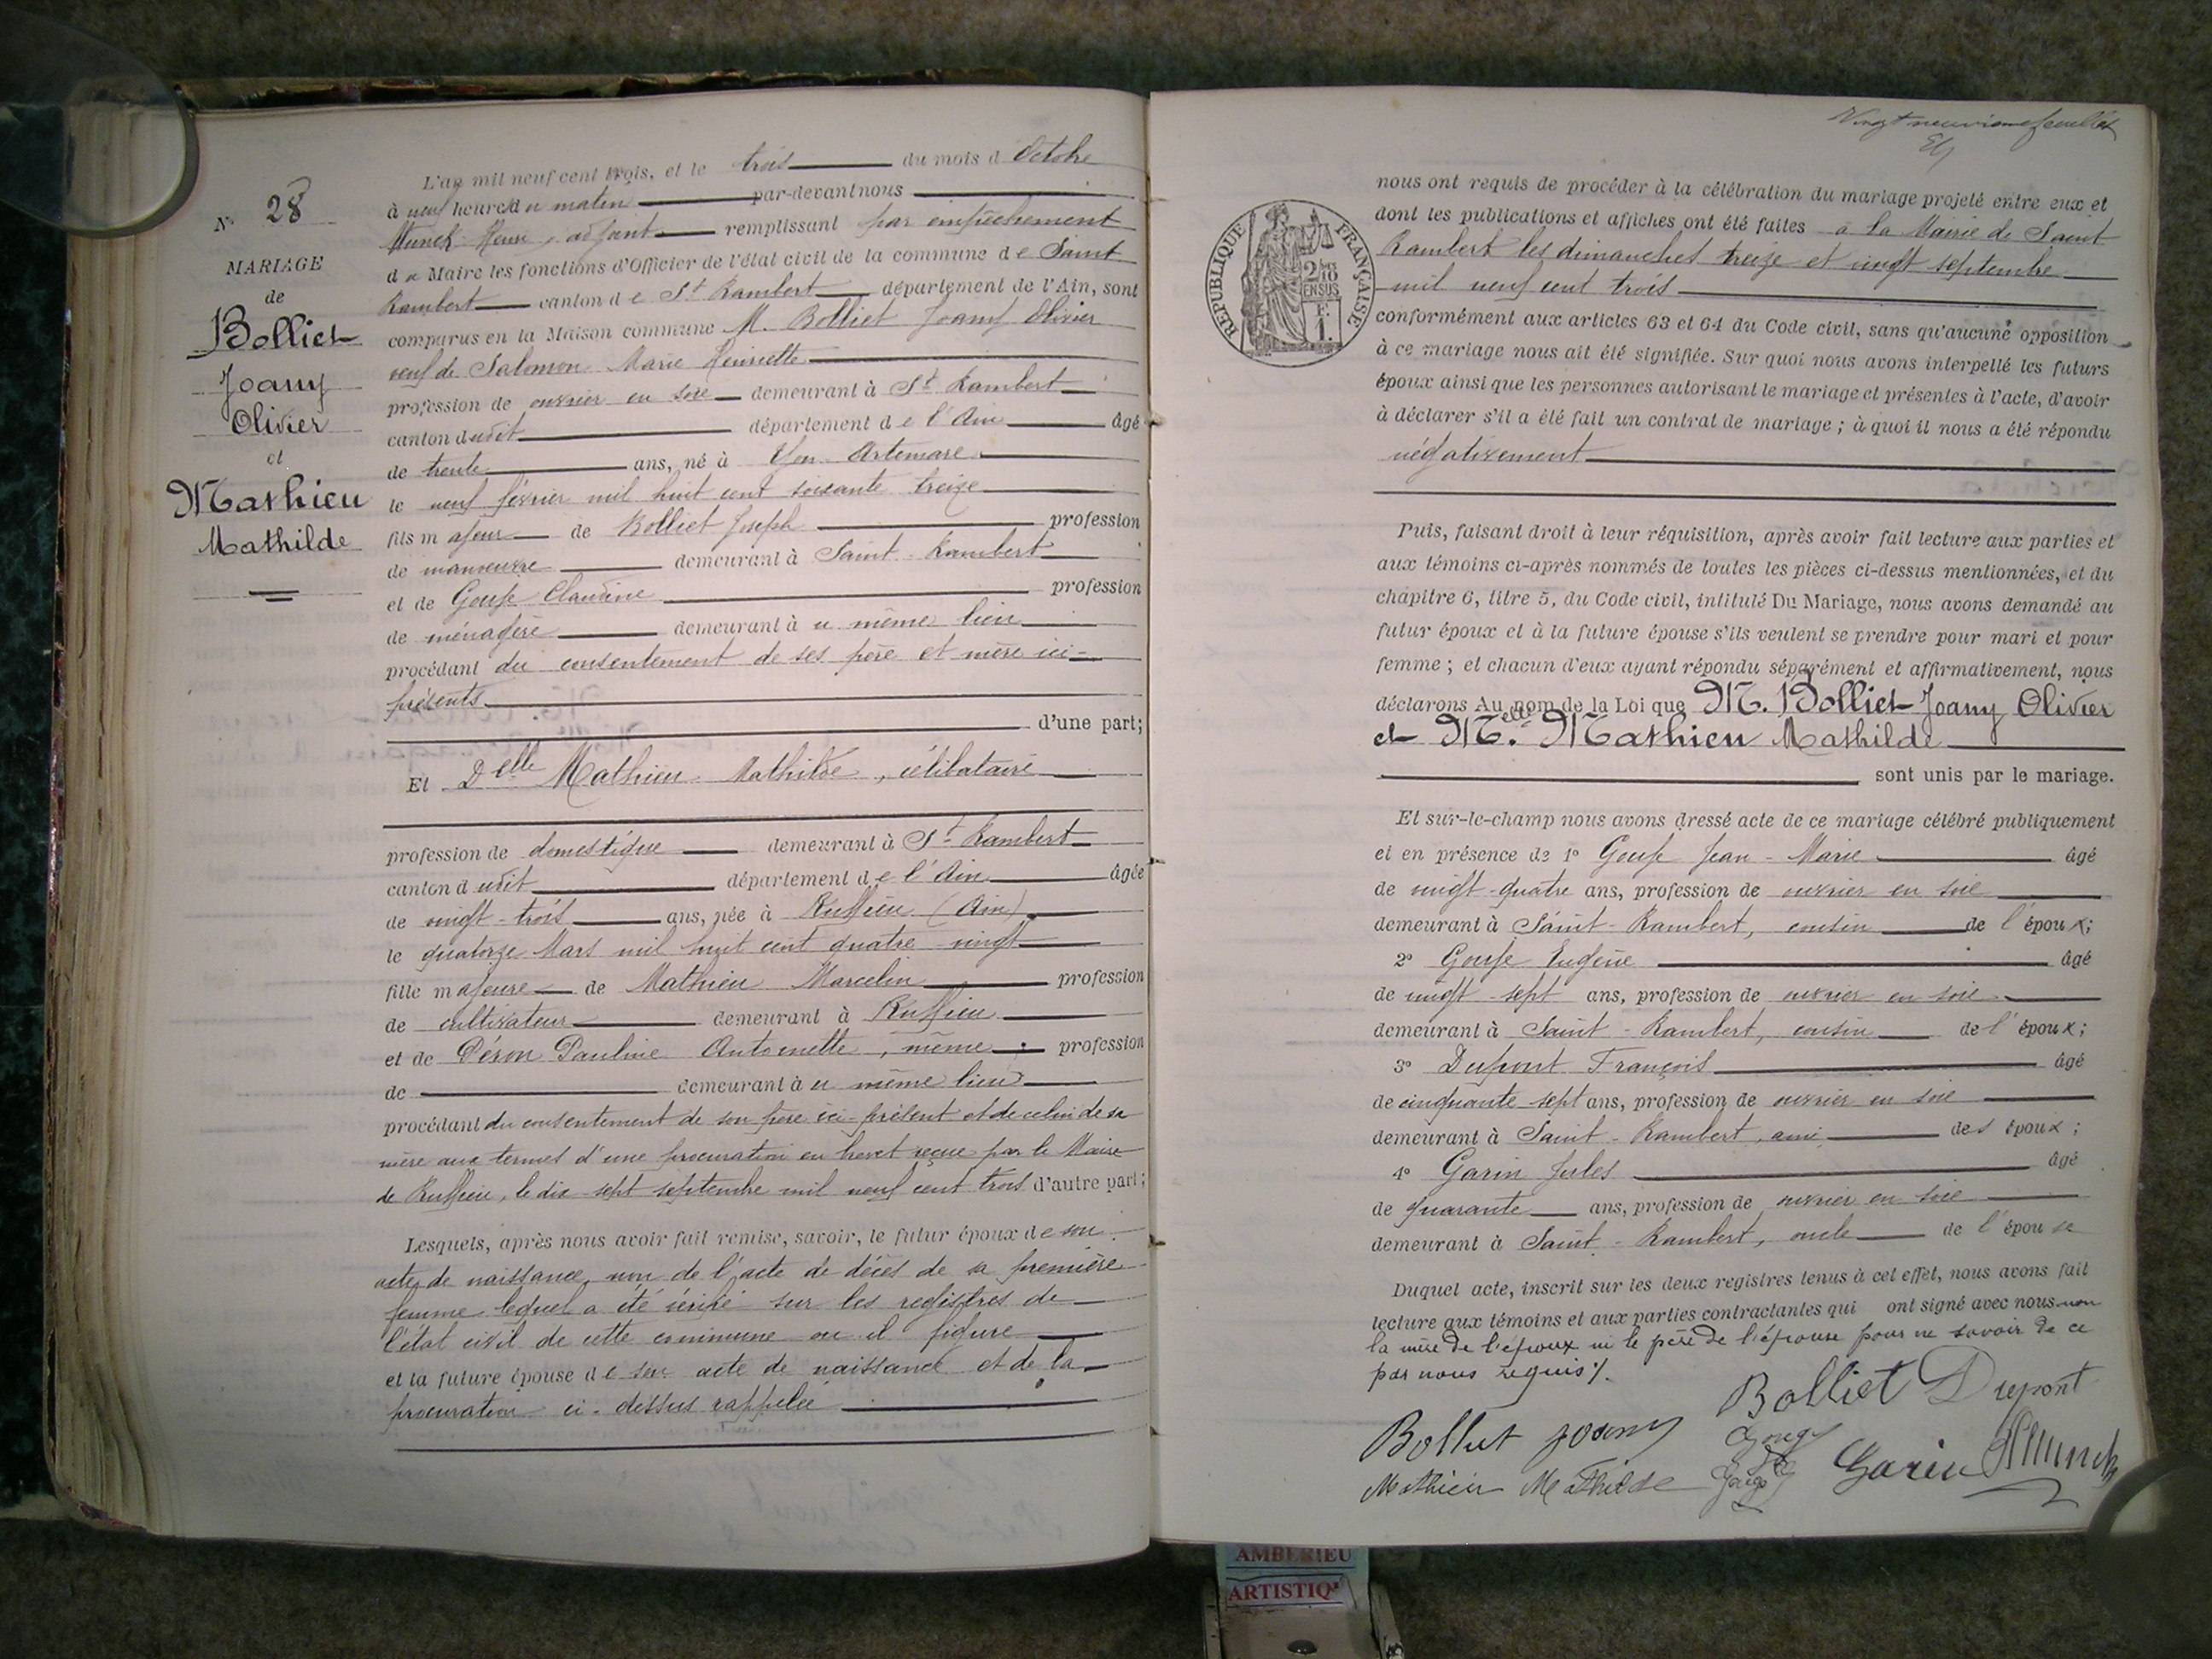 N° 28
MARIAGE
de
Bolliet
Joany
Olivier
et
Mathieu
Mathilde
L'an mil neuf cent trois, et le trois du mois d'Octobre
à neuf heures du matin par-devant nous
Munck Henri, adjoint remplissant par empêchement
du Maire les fonctions d'Officier de l'état civil de la commune de Saint
Rambert canton de St Rambert département de l'Ain, sont
comparus en la Maison commune M. Bolliet Joany Olivier
veuf de Salomon Marie Henriette
profession de ouvrier en soie demeurant à St Rambert
canton dudit département de l'Ain âgé
de trente ans, né à Yon-Artemare
le neuf février mil huit cent soixante treize
fils majeur de Bolliet Joseph profession
de manoeuvre demeurant à Saint-Rambert
et de Gouge Claudine profession
de ménagère demeurant àu même lieu
procédant du consentement de ses père et mère ici-
présents
d'une part;
Et Delle Mathieu Mathilde, célibataire
profession de domestique demeurant à St Rambert
canton dudit département de l'Ain âgée
de vingt-trois ans, née à Ruffieu (Ain)
le quatorze Mars mil huit cent quatre vingt
fille majeure de Mathieu Marcelin profession
de cultivateur demeurant à Ruffieu
et de Péron Pauline Antoinette, même profession
de demeurant àu même lieu
procédant du consentement de son père ici-présent et de celui de sa
mère aux termes d'une procuration en brevet reçue par le Maire
de Ruffieu, le dix-sept septembre mil neuf cent trois d'autre part;
Lesquels, après nous avoir fait remise, savoir, le futur époux de son
acte de naissance, non de l'acte de décès de sa première
femme lequel a été vérifié sur les registres de
l'état civil de cette commune ou il figure
et la future épouse de son acte de naissance et de la
procuration ci-dessus rappelée
Vingt neuvième feuillet
RÉPUBLIQUE FRANÇAISE
nous ont requis de procéder à la célébration du mariage projeté entre eux et
dont les publications et affiches ont été faites à la Mairie de Saint
Rambert les dimanches treize et vingt septembre
mil neuf cent trois
conformément aux articles 63 et 64 du Code civil, sans qu'aucune opposition
à ce mariage nous ait été signifiée. Sur quoi nous avons interpellé les futurs
époux ainsi que les personnes autorisant le mariage et présentes à l'acte, d'avoir
à déclarer s'il a été fait un contrat de mariage; à quoi il nous a été répondu
négativement
Puis, faisant droit à leur réquisition, après avoir fait lecture aux parties et
aux témoins ci-après nommés de toutes les pièces ci-dessus mentionnées, et du
chapitre 6, titre 5, du Code civil, intitulé Du Mariage, nous avons demandé au
futur époux et à la future épouse s'ils veulent se prendre pour mari et pour
femme; et chacun d'eux ayant répondu séparément et affirmativement, nous
déclarons Au nom de la Loi que M. Bolliet Joany Olivier
et Melle Mathieu Mathilde
sont unis par le mariage.
Et sur-le-champ nous avons dressé acte de ce mariage célébré publiquement
et en présence de 1° Gouge Jean-Marie âgé
de vingt-quatre ans, profession de ouvrier en soie
demeurant à Saint-Rambert, cousin de l'époux;
2° Gouge Eugène âgé
de vingt-sept ans, profession de ouvrier en soie
demeurant à Saint-Rambert, cousin de l'époux;
3° Dupont François âgé
de cinquante-sept ans, profession de ouvrier en soie
demeurant à Saint-Rambert, ami des époux;
4° Garin Jules âgé
de quarante ans, profession de ouvrier en soie
demeurant à Saint-Rambert, oncle de l'épouse
Duquel acte, inscrit sur les deux registres tenus à cet effet, nous avons fait
lecture aux témoins et aux parties contractantes qui ont signé avec nous non
la mère de l'époux ni le père de l'épouse pour ne savoir de ce
par nous requis ./.
Bolliet Dupont
Bolliet Joany Gouge
Mathieu Mathilde Gouge Garin HMunck
AMBERIEU
ARTISTIQ